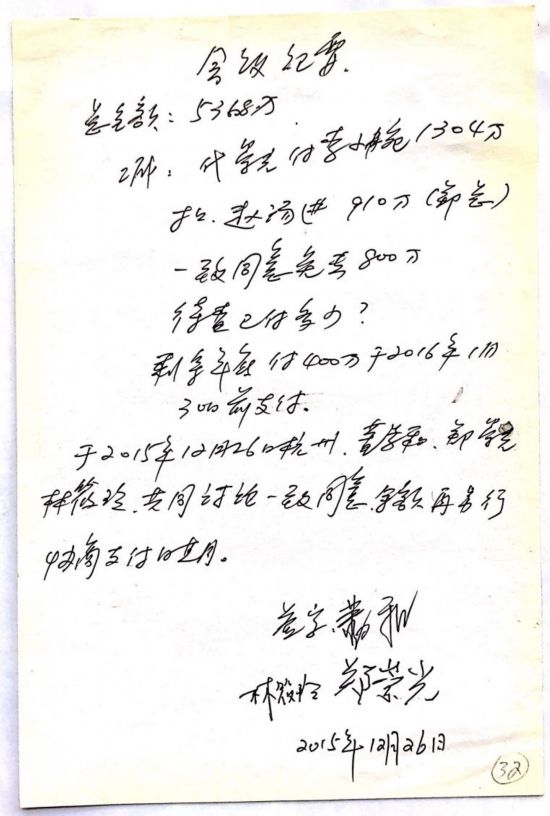 会议纪要
总金额：5368万
工所：代荣光付李小宛1304万
扣.赵汤进910万(郑总)
一致同意免去800万
待查已付多少？
剩余年底付400万于2016年1月
30日前支付。
于2015年12月26日杭州.董学和.郑荣光
林筱玲.共同讨论一致同意.余额再另行
协商支付日期。
签字:
林筱玲 郑荣光
2015年12月26日
32